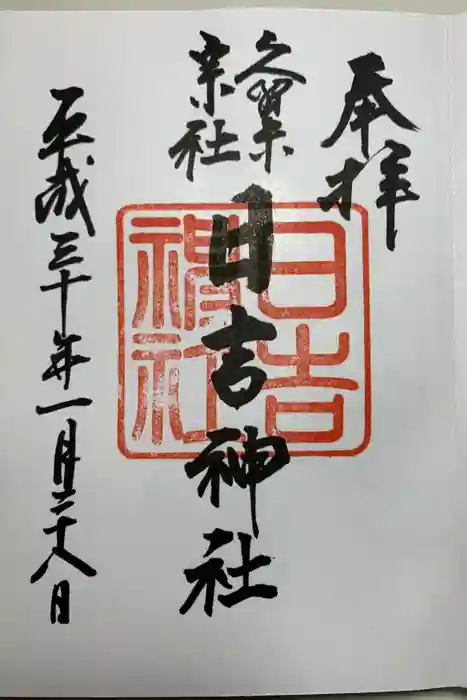 奉拝
久留米
宗社
日吉神社
日吉
神社
平成三十年一月二十八日